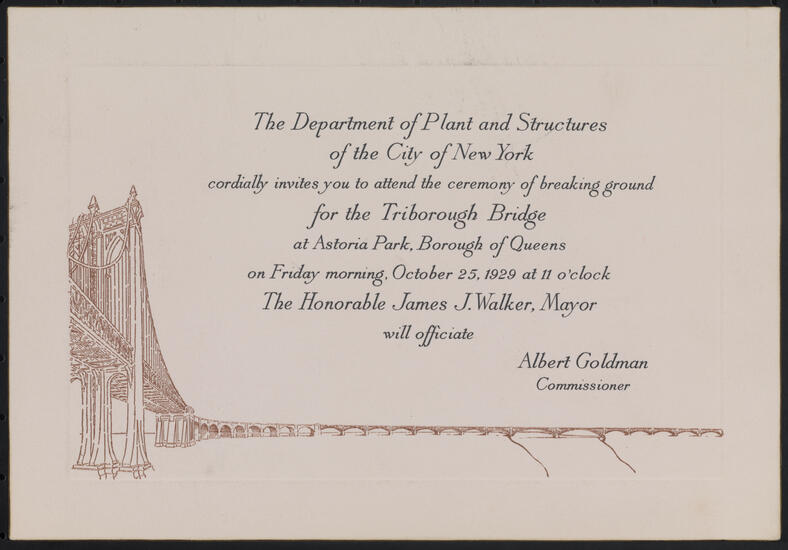 The Department of Plant and Structures
of the City of New York
cordially invites you to attend the ceremony of breaking ground
for the Triborough Bridge
at Astoria Park, Borough of Queens
on Friday morning, October 25, 1929 at 11 o'clock
The Honorable James J. Walker, Mayor
will officiate
Albert Goldman
Commissioner